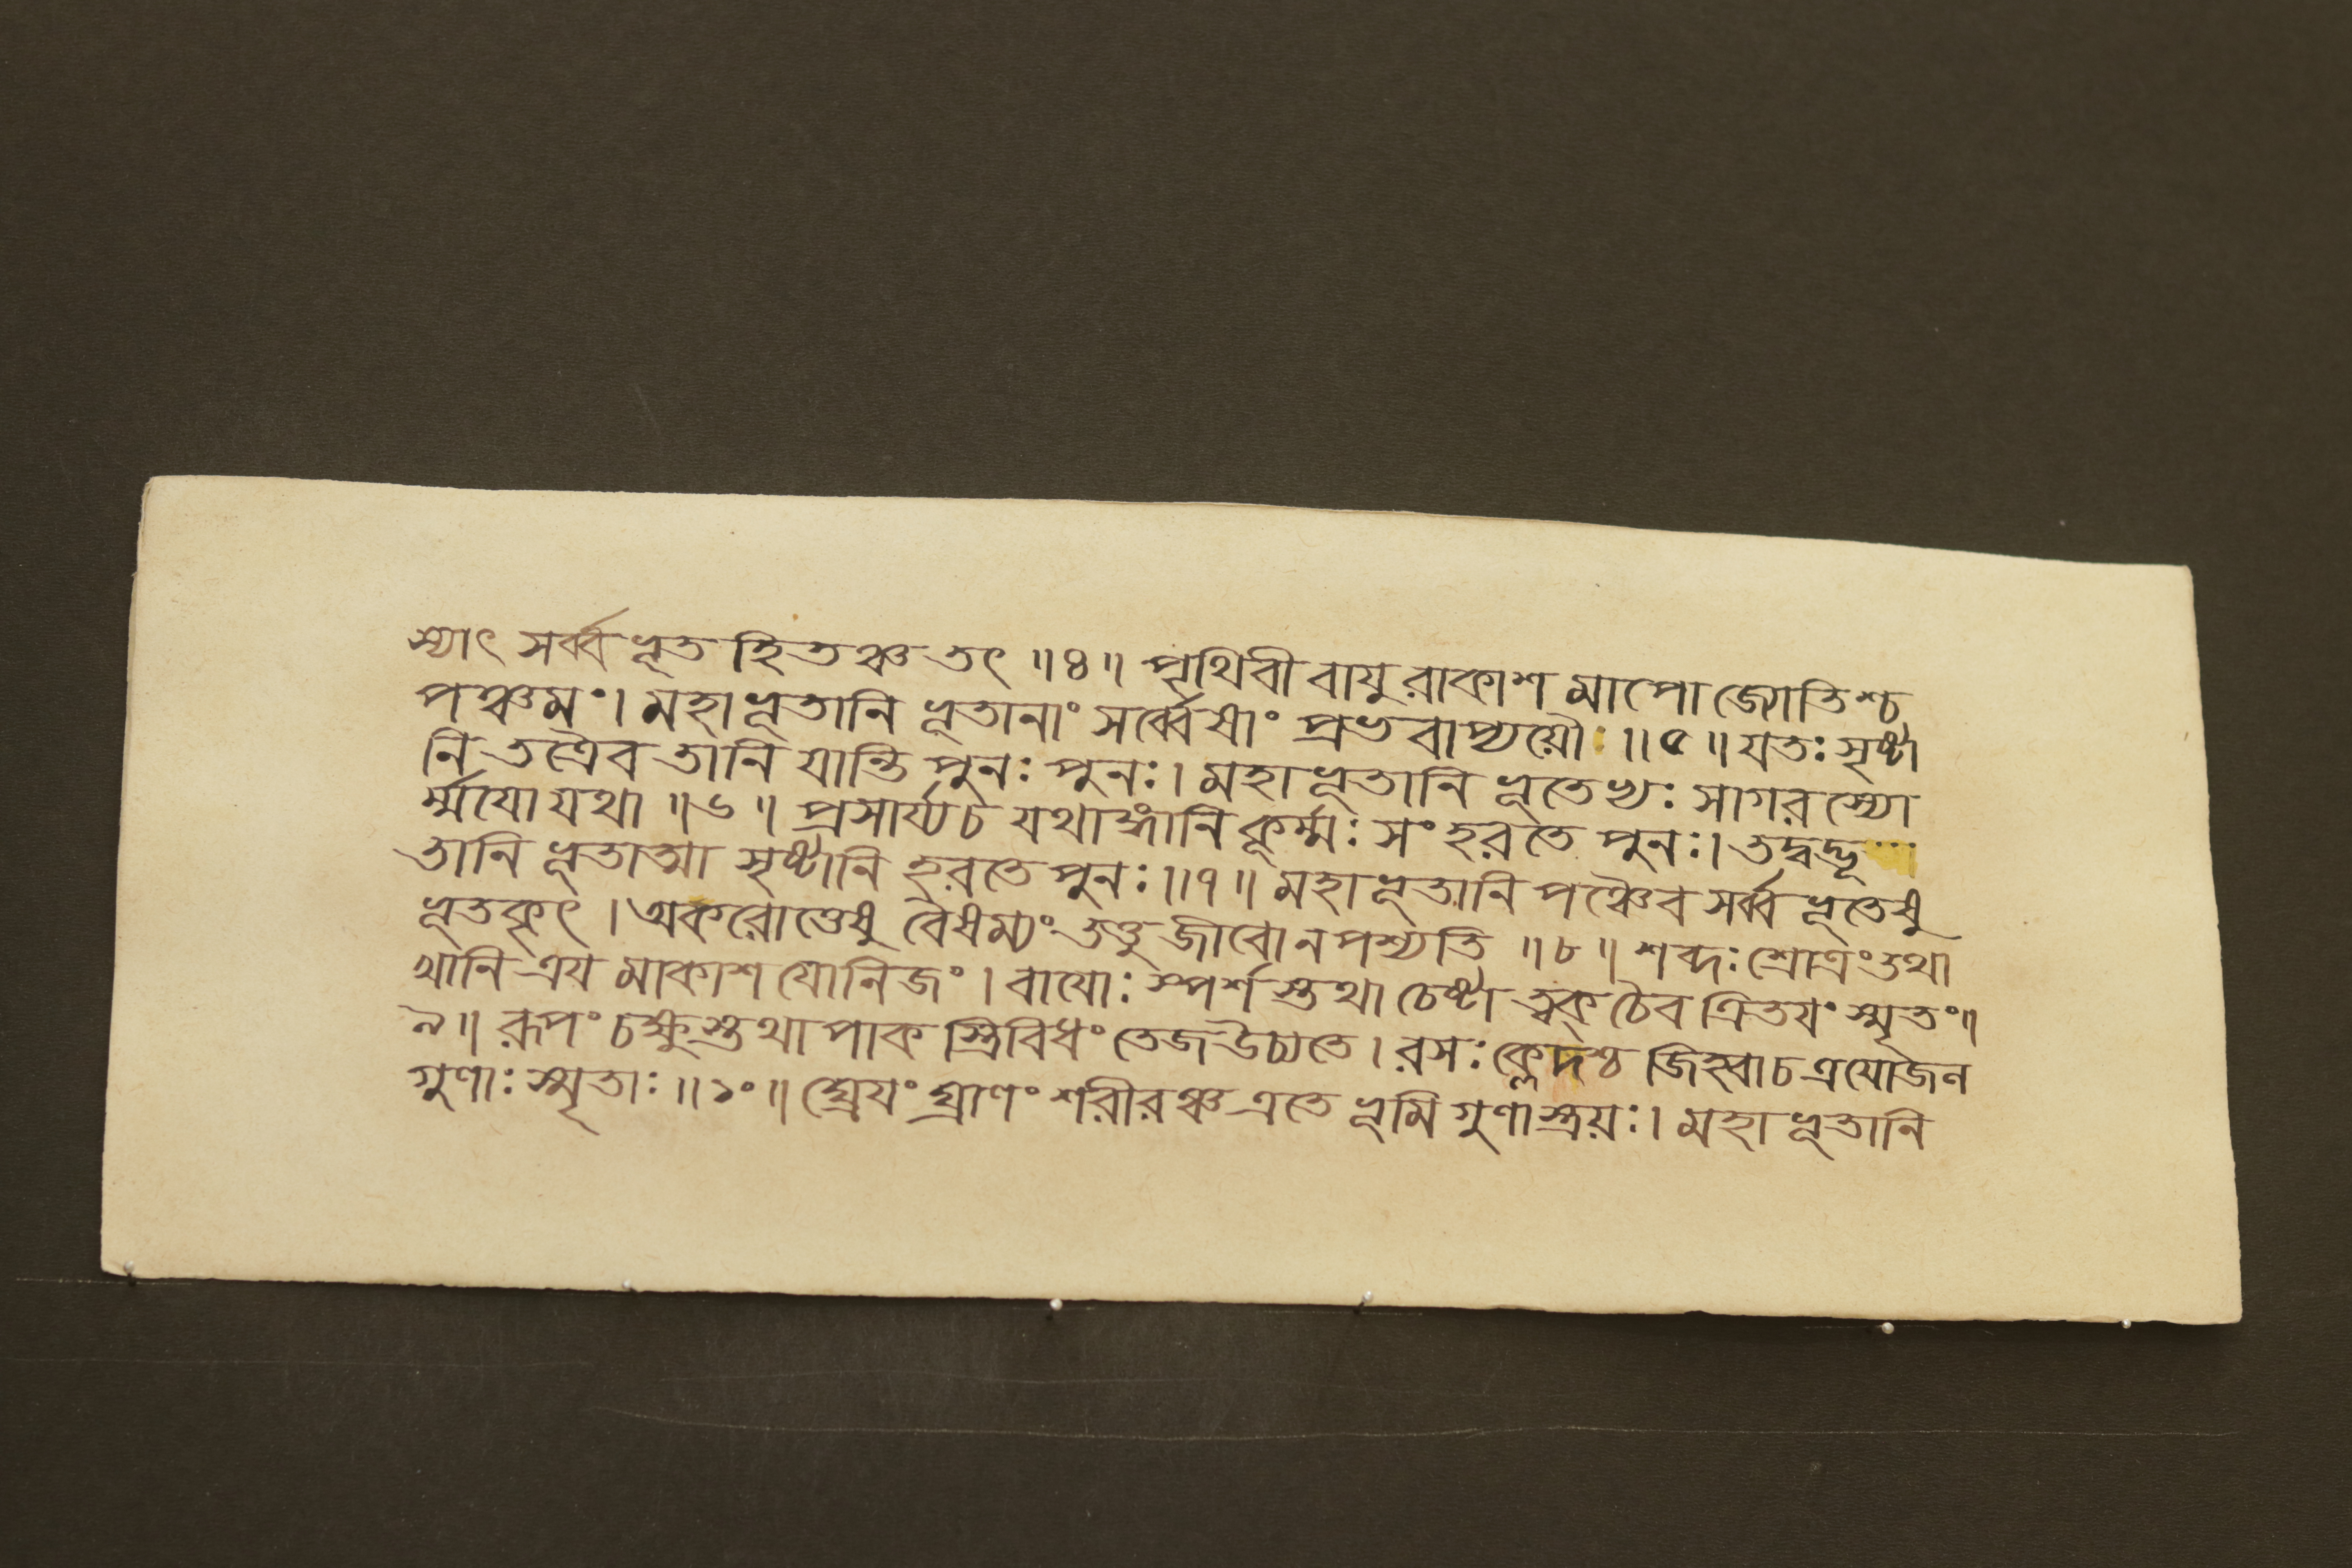 স্যাৎ সর্ব্বভূতহিতঞ্চ তৎ ॥৪॥ পৃথিবী বায়ুরাকাশমাপো জ্যোতিশ্চ
পঞ্চমং। মহাভূতানি ভূতানাং সর্ব্বেষাং প্রভবাপ্যয়ৌ ॥৫॥ যতঃ সৃষ্টা
নি তত্রৈব তানি যান্তি পুনঃ পুনঃ। মহাভূতানি ভূতেভ্যঃ সাগরস্যো
র্ম্ময়ো যথা ॥৬॥ প্রসার্য্য চ যথাঙ্গানি কূর্ম্মঃ সংহরতে পুনঃ। তদ্বদ্ভূ...
তানি ভূতাত্মা সৃষ্টানি হরতে পুনঃ ॥৭॥ মহাভূতানি পঞ্চৈব সর্ব্বভূতেষু
ভূতকৃৎ। অকরোত্তেষু বৈষম্যং তত্তু জীবো ন পশ্যতি ॥৮॥ শব্দঃ শ্রোত্রং তথা
খানি ত্রয়মাকাশযোনিজং। বায়োঃ স্পর্শস্তথা চেষ্টা ত্বক্ চৈব ত্রিতয়ং স্মৃতং॥
৯॥ রূপং চক্ষুস্তথা পাকস্ত্রিবিধং তেজ উচ্যতে। রসঃ ক্লেদশ্চ জিহ্বা চ ত্রয়ো জল
গুণাঃ স্মৃতাঃ ॥১০॥ ঘ্রেয়ং ঘ্রাণং শরীরঞ্চ এতে ভূমিগুণাস্ত্রয়ঃ। মহাভূতানি